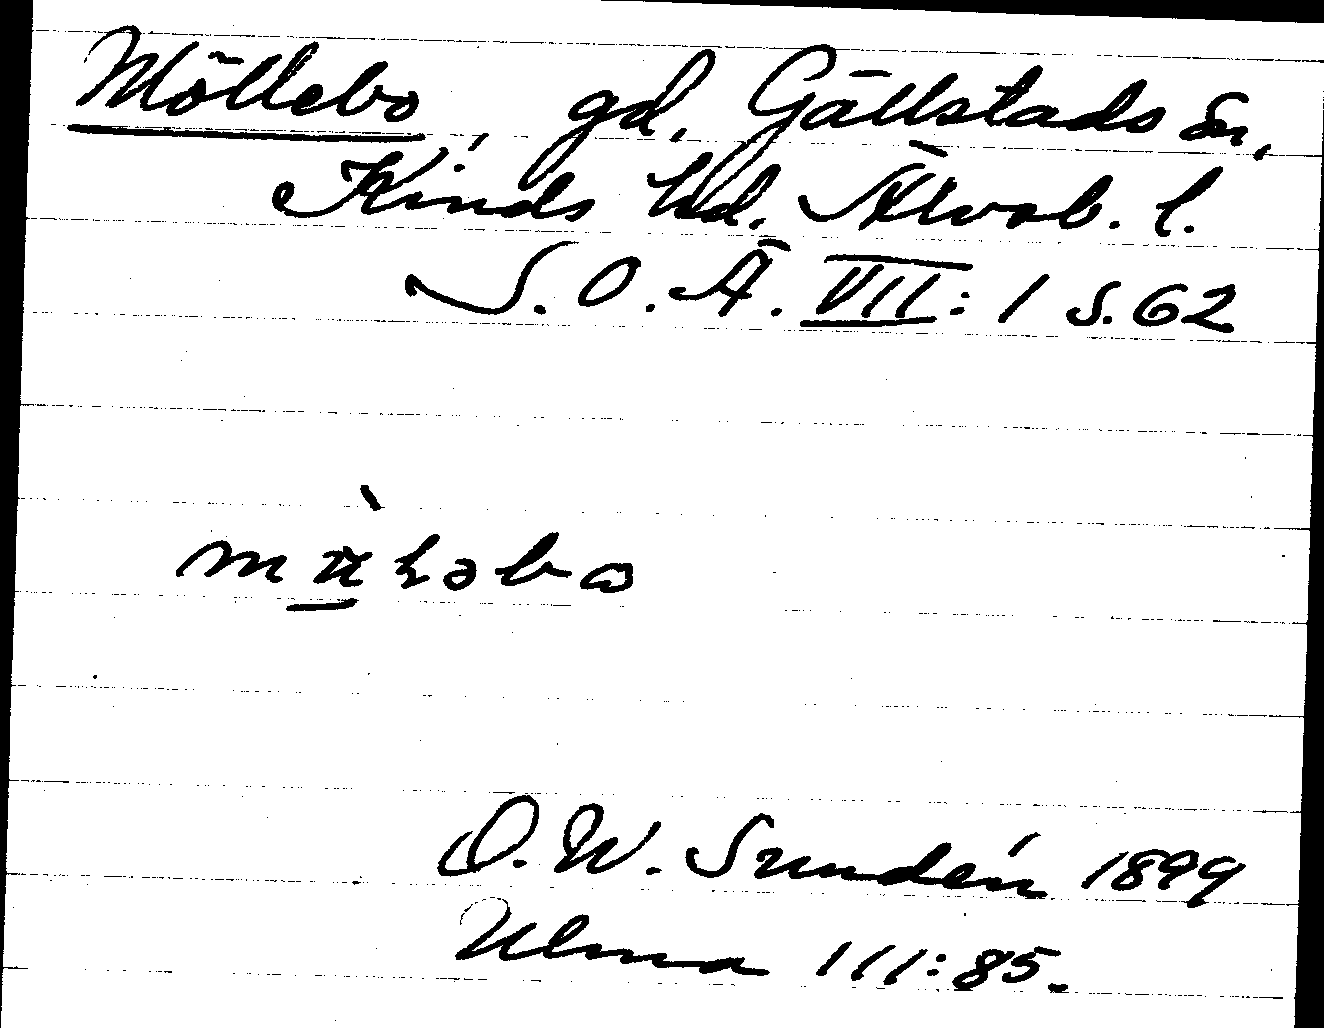 Möllebo, gd, Gällstads sn,
Kinds hd. Älvsb. l.
S. O. Ä. VII: 1 s. 62
O. W. Sundén 1899
Ulma 111:85.